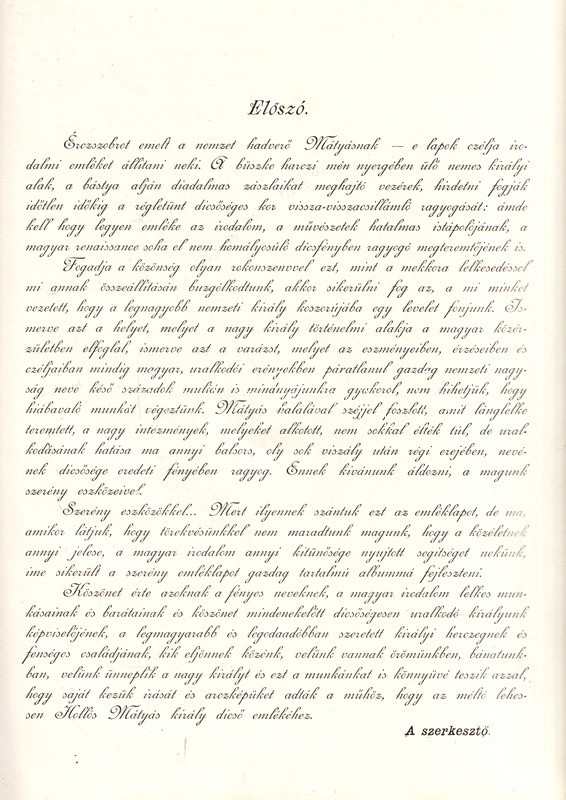 Előszó.
Érczszobrot emelt a nemzet hadverő Mátyásnak — e lapok czélja iro-
dalmi emléket állítani neki. A büszke harczi mén nyergében ülő nemes királyi
alak, a bástya alján diadalmas zászlaikat meghajtó vezérek, hirdetni fogják
időtlen időkig a régletünt dicsőséges kor vissza-visszacsillámló ragyogását: ámde
kell hogy legyen emléke az irodalom, a művészetek hatalmas istápolójának, a
magyar renaissance soha el nem homályosúló dicsfényben ragyogó megteremtőjének is.
Fogadja a közönség olyan rokonszenvvel ezt, mint a mekkora lelkesedéssel
mi annak összeállításán buzgólkodtunk, akkor sikerülni fog az, a mi minket
vezetett, hogy a legnagyobb nemzeti király koszorújába egy levelet fonjunk. Is-
merve azt a helyet, melyet a nagy király történelmi alakja a magyar közér-
zületben elfoglal, ismerve azt a varázst, melyet az eszményeiben, érzéseiben és
czéljaiban mindig magyar, uralkodói erényekben páratlanul gazdag nemzeti nagy-
ság neve késő századok multán is minányájunkra gyakorol, nem hihetjük, hogy
hiábavaló munkát végeztünk. Mátyás halálával széjjel foszlott, amit lánglelke
teremtett, a nagy intézmények, melyeket alkotott, nem sokkal élték túl, de ural-
kodásának hatása ma annyi balsors, oly sok viszály után régi erejében, nevé-
nek dicsősége eredeti fényében ragyog. Ennek kivánunk áldozni, a magunk
szerény eszközeivel.
Szerény eszközökkel... Mert ilyennek szántuk ezt az emléklapot, de ma,
amikor látjuk, hogy törekvésünkkel nem maradtunk magunk, hogy a közéletnek
annyi jelese, a magyar irodalom annyi kitünősége nyujtott segitséget nekünk,
ime sikerült a szerény emléklapot gazdag tartalmú albummá fejleszteni.
Köszönet érte azoknak a fényes neveknek, a magyar irodalom lelkes mun-
kásainak és barátainak és köszönet mindenekelőtt dicsőségesen uralkodó királyunk
képviselőjének, a legmagyarabb és legodaadóbban szeretett királyi herczegnek és
fenséges családjának, kik eljönnek közénk, velünk vannak örömünkben, bánatunk-
ban, velünk ünneplik a nagy királyt és ezt a munkánkat is könnyüvé teszik azzal,
hogy saját kezük irását és arczképüket adták a műhöz, hogy az méltó lehes-
sen Hollós Mátyás király dicső emlékéhez.
A szerkesztő.